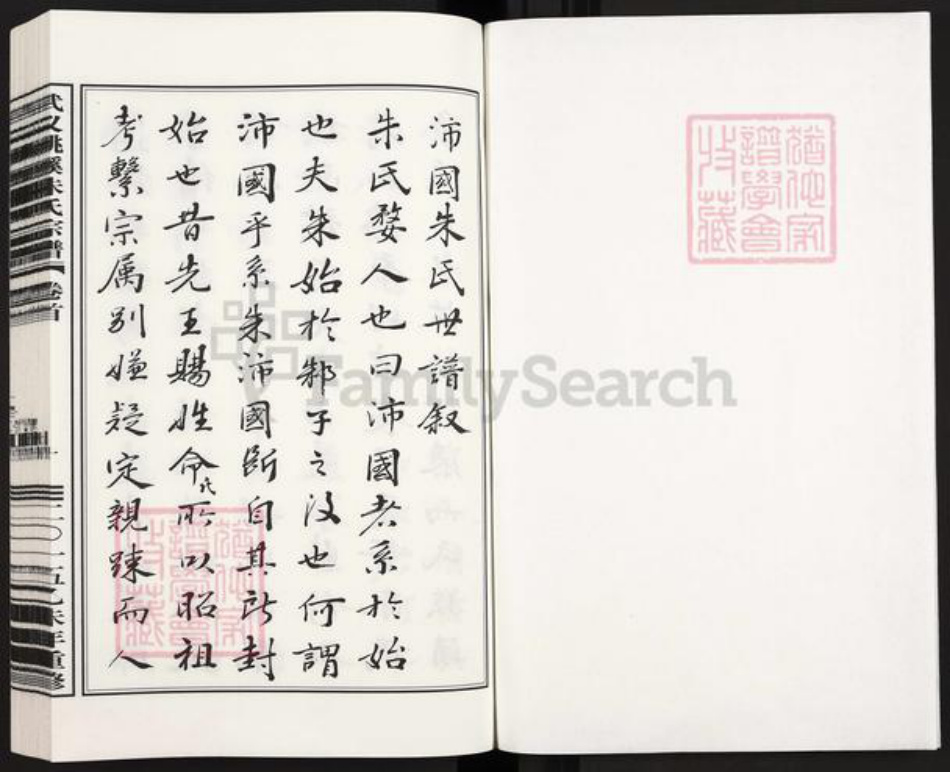 沛國朱氏世譜叙
朱氏婺人也曰沛國者系於始
也夫朱始於邾子之後也何謂
沛國乎系朱沛國斷自其所封
始也昔先王賜姓命氏所以昭祖
考繫宗属别嫌疑定親踈而人
武義桃溪朱氏宗譜 卷首
一
二〇一五乙未年重修
猶他家譜學會收藏
猶他家譜學會收藏
FamilySearch